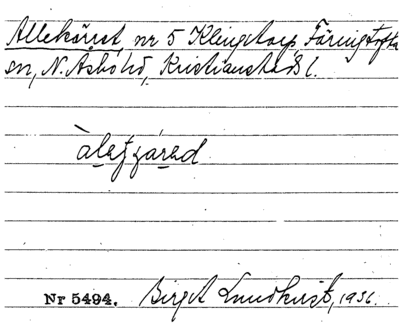 Allekärret, nr 5 Klingstorp, Färingtofta
sn, N. Åsbo hd, Kristianstads l.
Nr 5494. Birgit Lundkvist, 1936.